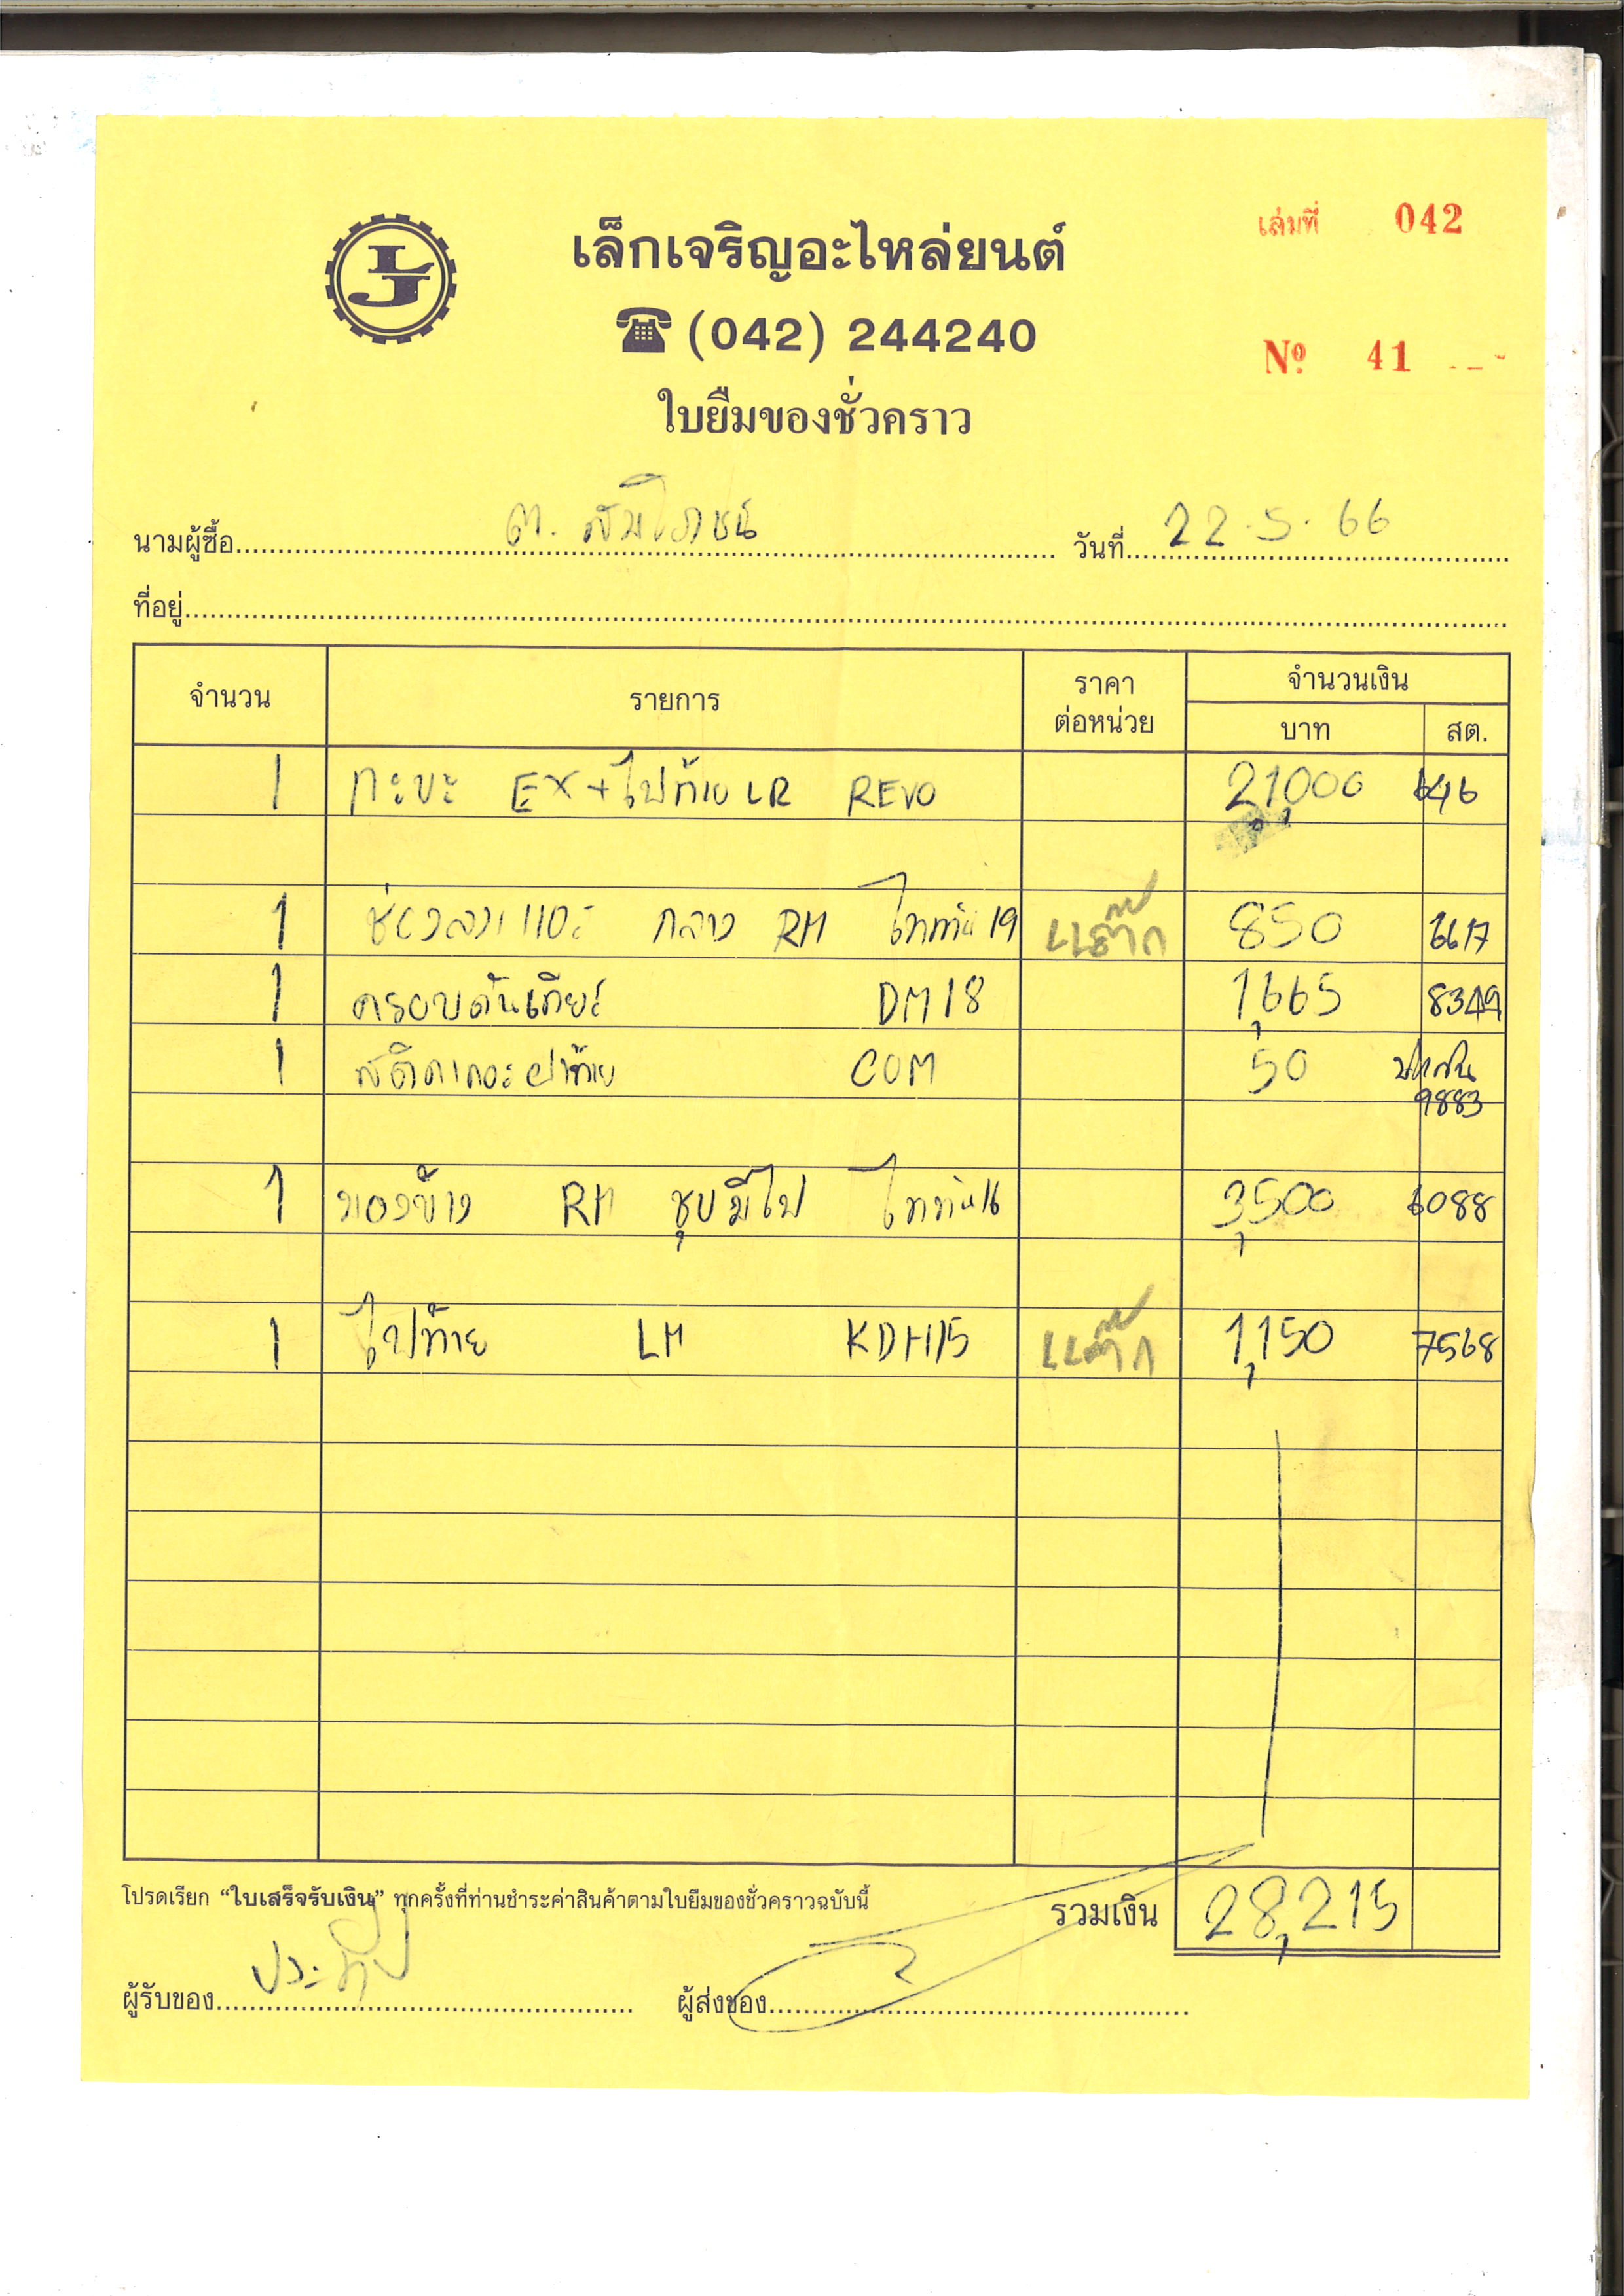 เล่มที่ 042
เล็กเจริญอะไหล่ยนต์
(042) 244240
Nº 41
ใบยืมของชั่วคราว
นามผู้ซื้อ วันที่ 22-5-66
ที่อยู่
จำนวน รายการ ราคาต่อหน่วย จำนวนเงิน
บาท สต.
1 กะบะ EX+ไฟท้าย LR REVO 21,000 646
1 กลาง RH ไททัน 19 850 6617
1 ครอบคันเกียร์ DM18 1,665 8349
1 ฝาท้าย COM 50
9883
1 มองข้าง RH ชุบมีไฟ ไททัน16 3,500 6088
1 ไฟท้าย LH KDH15 1,150 7568
โปรดเรียก “ใบเสร็จรับเงิน” ทุกครั้งที่ท่านชำระค่าสินค้าตามใบยืมของชั่วคราวฉบับนี้
รวมเงิน 28,215
ผู้รับของ ประทีป ผู้ส่งของ